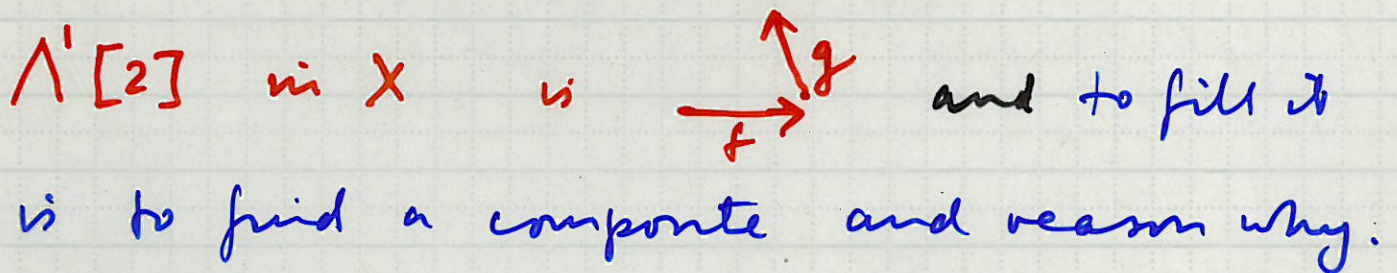 Λ¹[2] in X is f g and to fill it
is to find a composite and reason why.